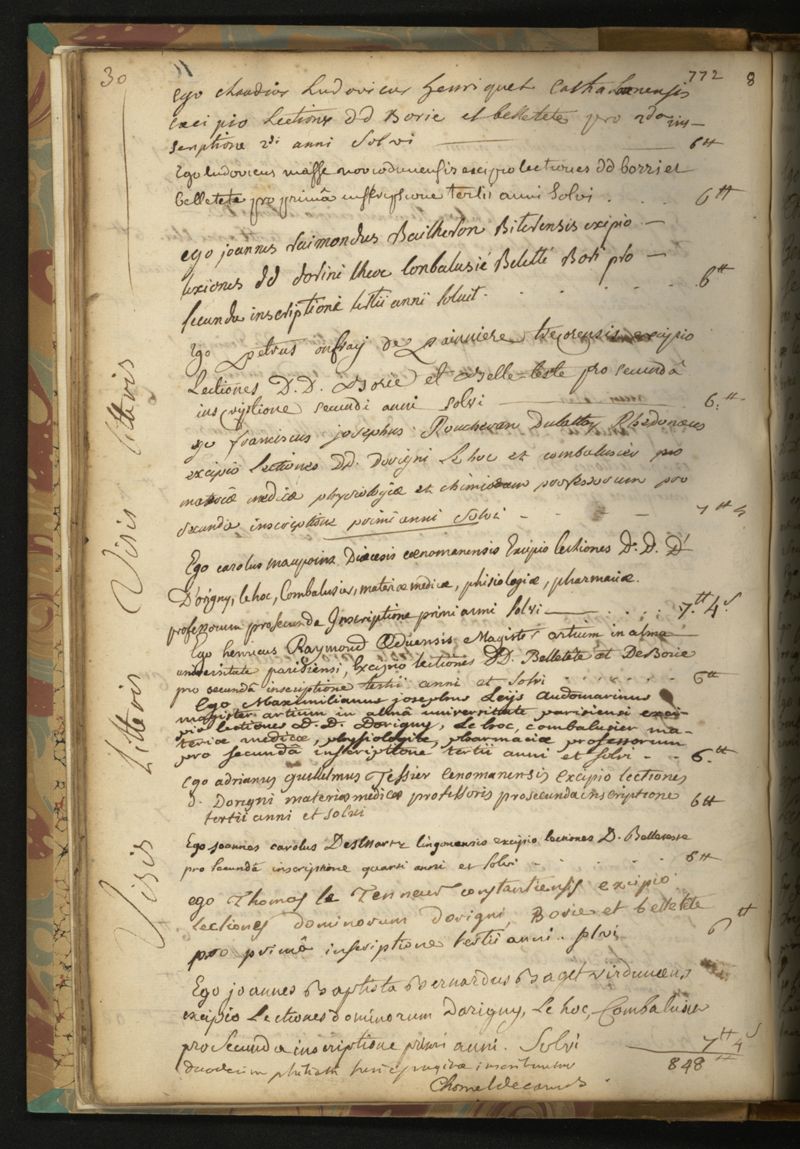 30
772 8
Ego claudius Ludovicus henriquet Cathalaunensis
excipio Lectiones dd Borie et belletete pro 2da ins-
scriptione 2di anni Solvi 6tt
Ego ludovicus masse noviodunensis excipio lectiones dd borri et
belletete pro primâ inscriptione tertii anni Solvi . . . 6tt
ego joannes raimondus Bailheron Biterensis exipio
lexiones dd dorini lheoc Conbalusié Beletté Bori pro
secunda inscriptione tertii annii soluit . . . 6tt
Ego Petrus onfray de trecorensis excipio
Lectiones D.D. Borie et Belle-teste pro secundâ
inscriptione secundi anni solvi 6.tt
ego franciscus josephus Rhedonæus
excipio Lectiones DD. Dorigni Le hoc et combalusier pro
materiæ medicæ physiologiæ et professorum pro
secunda inscriptione primi anni solvi 7tt 4
Ego carolus maupoint Diœcesis cœnomanensis Excipio lectiones D. D. D
D'origny, le hoc, Combalusier, materiæ medicæ, phisiologiæ, pharmaciæ
professorum pro secunda Inscriptione primi anni solvi . . . . 7.tt 4.s
Ego henricus Raymond Æduensis Magister artium in alma
universitate parisiensi, Excipio lectiones DD. Belletete et De Borie
pro secundâ inscriptione tertii anni et solvi . . . . . 6tt
Ego Maximilianus josephus Leijs Audomarinus
magister artium in almâ universitate parisiensi exci-
pio lectiones D. D. Dorigny, Le hoc, combalusier ma-
teriæ medicæ, physiologiæ, pharmaciæ professorum
pro secundâ inscriptione tertii anni et solvi . . 6.tt
Ego adrianus guillelmus Tessier Cenomanensis Excipio lectiones
d. Dorigni materiæ medicæ professoris pro secunda inscriptione
tertii anni et solvi 6tt
Ego joannes carolus lingonensis excipio lectiones D. Belleteste
pro secundâ inscriptione quarti anni et solvi . . . . . 6tt
ego Thomas le Tenneur constantiensis excipio
Lectiones dominorum dorigni, Borie et belletete
pro primâ inscriptione tertii anni. solvi 6tt
Ego joannes Baptista Bernardus Baget virdunœus
excipio Lectiones Dominorum Dorigny, Le hoc, Combalusier
pro Secunda inscriptione primi anni. Solvi 7tt 4s
848tt
duodecim
Chomel decanus
Visis Litteris Visis litteris